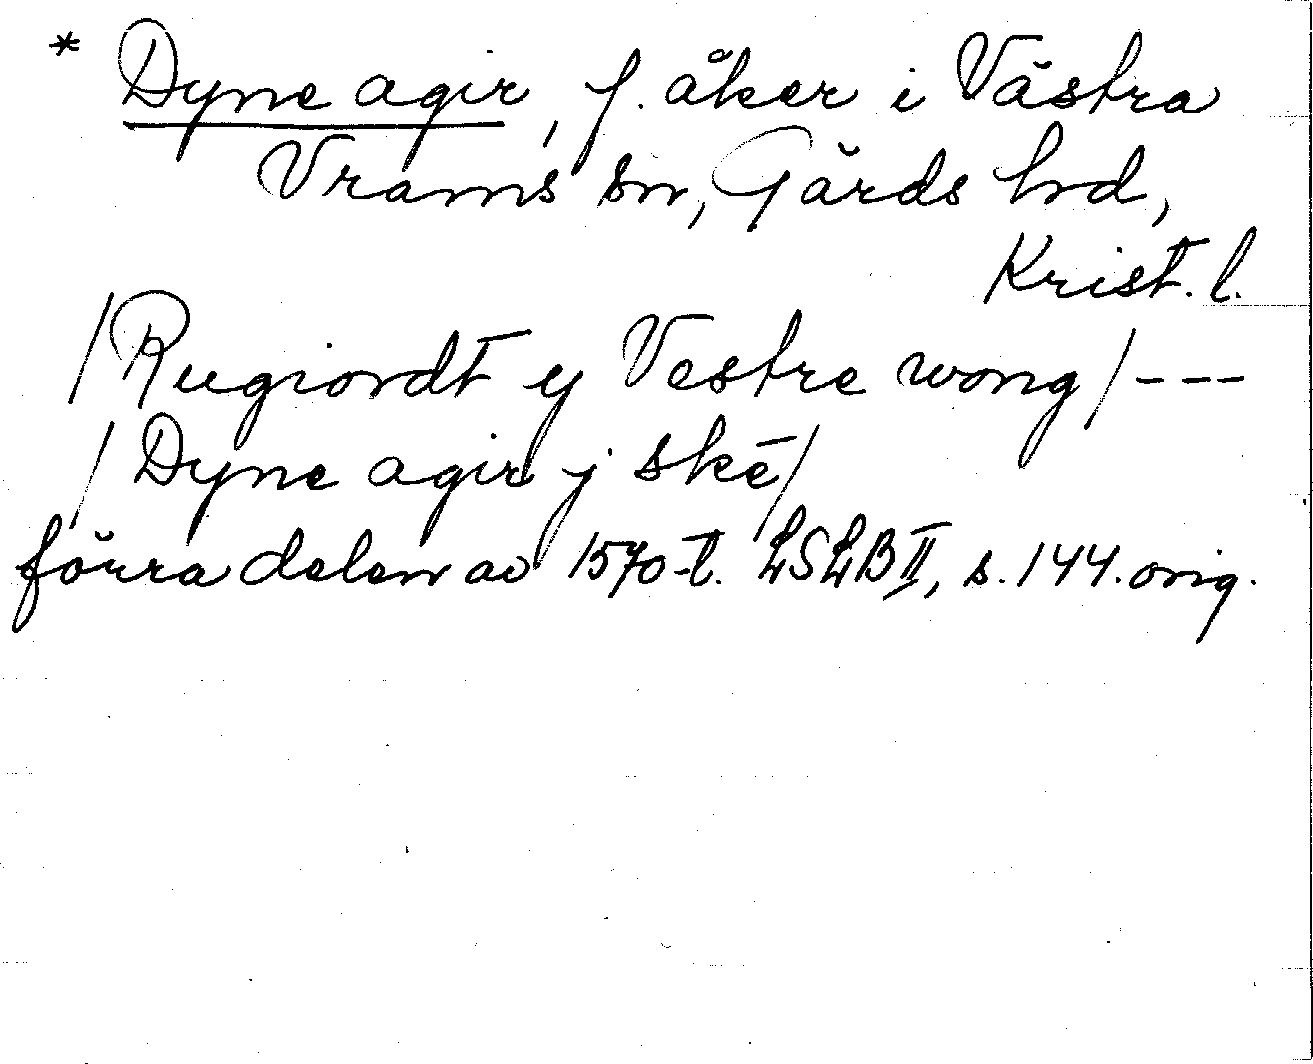 * Dyne agir, f. åker i Västra
Vrams sn, Gärds hd,
Krist. l.
/Rugiordt y Vestre wong/---
/Dyne agir j skē/
förra delen av 1570-t. LSLB II, s. 144. orig.